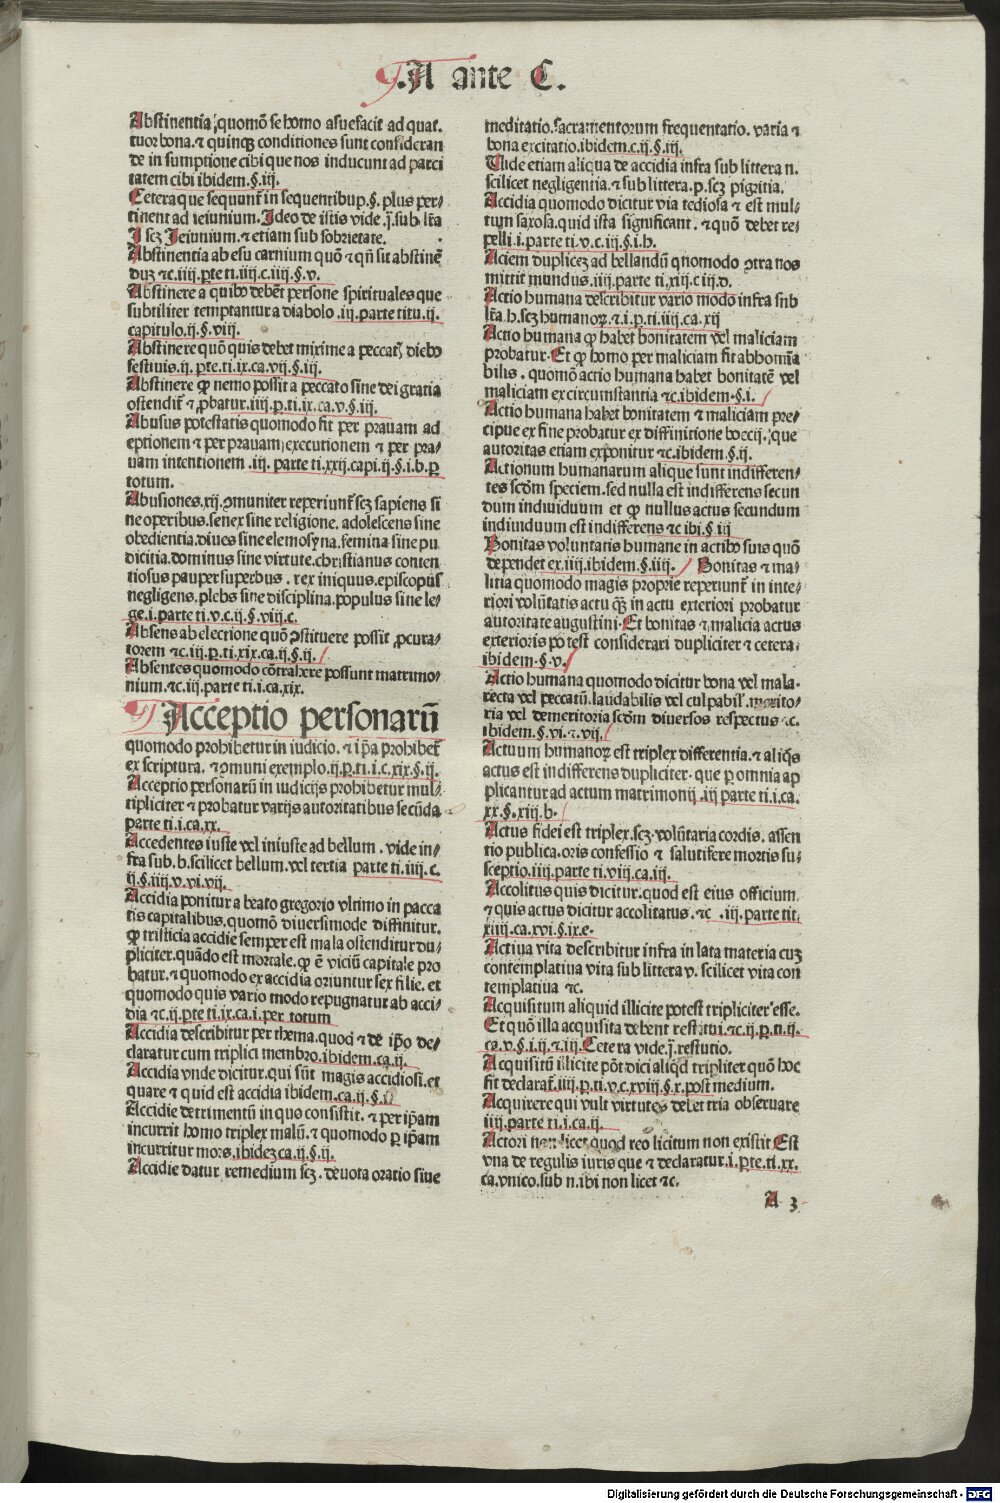 .A ante C.
Abstinentia quomō se homo asuefacit ad quat.
tuor bona. ⁊ quinqꝫ conditiones sunt consideran
de in sumptione cibi que nos inducunt ad parci
tatem cibi ibidem. §. iij.
Cetera que sequunt̄ in sequentibus p. §. plus per-
tinent ad ieiunium. Ideo de istis vide .j. sub lr̄a
I scꝫ Ieiunium. ⁊ etiam sub sobrietate.
Abstinentia ab esu carnium quō ⁊ qn̄ sit abstinē
duꝫ ⁊c. iiij. pte ti. iiij. c. iiij. §. v.
Abstinere a quibꝰ debent persone spirituales que
subtiliter temptantur a diabolo .iij. parte titu. ij.
capitulo. ij. §. viij.
Abstinere quō quis debet mixime a peccat̄ diebꝰ
festiuis. ij. pte. ti. ix. ca. vij. §. iij.
Abstinere ꝙ nemo possit a peccato sine dei gratia
ostendit̄ ⁊ ꝓbatur. iiij. p. ti. ix. ca. v. §. iij.
Abusus potestatis quomodo fit per prauam ad
eptionem ⁊ per prauam executionem ⁊ per pra-
uam intentionem .iij. parte ti. xxij. capi. ij. §. i. b. ꝑ
totum.
Abusiones. xij. ꝯmuniter reperiunt̄ scꝫ sapiens si
ne operibus. senex sine religione. adolescens sine
obedientia. diues sine elemosyna. femina sine pu
dicitia. dominus sine virtute. christianus conten
tiosus pauper superbus. rex iniquus. episcopus
negligens. plebs sine disciplina. populus sine le-
ge. i. parte ti. v. c. ij. §. viij. c.
Absens ab electione quō ꝯstituere possit ꝓcura-
torem ⁊c. iij. p. ti. xix. ca. ij. §. ij.
Absentes quomodo cōtrahere possunt matrimo-
nium. ⁊c. iij. parte ti. i. ca. xix.
Acceptio personarū
quomodo prohibetur in iudicio. ⁊ ip̄a prohibet̄
ex scriptura. ⁊ ꝯmuni exemplo. ij. p. ti. i. c. xix. §. ij.
Acceptio personarū in iudicijs prohibetur mul-
tipliciter ⁊ probatur varijs autoritatibus secūda
parte ti. i. ca. xx.
Accedentes iuste vel iniuste ad bellum. vide in-
fra sub. b. scilicet bellum. vel tertia parte ti. iiij. c.
ij. §. iij. v. vi. vij.
Accidia ponitur a beato gregorio vltimo in pecca
tis capitalibus. quomō diuersimode diffinitur.
ꝙ tristicia accidie semper est mala ostenditur du-
pliciter. quādo est mortale. ꝙ ē viciū capitale pro
batur. ⁊ quomodo ex accidia oriuntur sex filie. et
quomodo quis vario modo repugnatur ab acci-
dia ⁊c. ij. pte ti. ix. ca. i. per totum
Accidia describitur per thema. quot ⁊ de ip̄o de-
claratur cum triplici membro. ibidem. ca. ij.
Accidia vnde dicitur. qui sūt magis accidiosi. et
quare ⁊ quid est accidia ibidem. ca. ij. §. i
Accidie detrimentū in quo consistit. ⁊ per ip̄am
incurrit homo triplex malū. ⁊ quomodo ꝑ ip̄am
incurritur mors. ibideꝫ ca. ij. §. ij.
Accidie datur remedium scꝫ. deuota oratio siue
meditatio. sacramentorum frequentatio. varia ⁊
bona excitatio. ibidem. c. ij. §. iij.
Vide etiam aliqua de accidia infra sub littera n.
scilicet negligentia. ⁊ sub littera. p. scꝫ pigritia.
Accidia quomodo dicitur via tediosa ⁊ est mul-
tum saxosa. quid ista significant. ⁊ quō debet re-
pelli. i. parte ti. v. c. iij. §. i. h.
Aciem duplicez ad bellandū quomodo ꝯtra nos
mittit mundus. iij. parte ti. xij. c iij. d.
Actio humana describitur vario modo infra sub
lr̄a. h. scꝫ humanoꝝ ⁊ i. p. ti. iij. ca. xij
Actio humana ꝙ habet bonitatem vel maliciam
probatur. Et ꝙ homo per maliciam fit abhomīa
bilis. quomō actio humana habet bonitatē vel
maliciam ex circumstantia ⁊c. ibidem. §. i.
Actio humana habet bonitatem ⁊ maliciam pre-
cipue ex fine probatur ex diffinitione boecij. que
autoritas etiam exponitur ⁊c. ibidem. §. ij.
Actionum humanarum alique sunt indifferen-
tes scdm speciem. sed nulla est indifferens secun
dum indiuiduum et ꝙ nullus actus secundum
indiuiduum est indifferens ⁊c ibi. § iij
Bonitas voluntatis humane in actibꝰ suis quō
dependet ex. iiij. ibidem. §. iiij. Bonitas ⁊ ma-
litia quomodo magis proprie reperiunt̄ in inte-
riori volūtatis actu qꝫ in actu exteriori probatur
autoritate augustini. Et bonitas ⁊ malicia actus
exterioris potest considerari dupliciter ⁊ cetera
ibidem. §. v.
Actio humana quomodo dicitur bona vel mala.
recta vel peccatū. laudabilis vel culpabil̄. merito-
ria vel demeritoria scdm diuersos respectus ⁊c.
ibidem. §. vi. ⁊. vij.
Actuum humanoꝝ est triplex differentia. ⁊ aliq̄s
actus est indifferens dupliciter. que ꝑ omnia ap
plicantur ad actum matrimonij .iij parte ti. i. ca.
xx. §. xiij. b.
Actus fidei est triplex. scꝫ. volūtaria cordis. assen
tio publica. oris confessio ⁊ salutifere mortis su-
sceptio. iiij. parte ti. viij. ca. iij.
Accolitus quis dicitur. quod est eius officium.
⁊ quis actus dicitur accolitatus. ⁊c .iij. parte tit.
xiiij. ca. xvi. §. ix. e.
Actiua vita describitur infra in lata materia cuꝫ
contemplatiua vita sub littera v. scilicet vita con
templatiua ⁊c.
Acquisitum aliquid illicite potest tripliciter esse.
Et quō illa acquisita debent restitui. ⁊c. ij. p. ti. ij.
ca. v. §. i. ij. ⁊. iij. Cetera vide. j. restutio.
Acquisitū illicite pōt dici aliqd tripliter quō hoc
fit declarat̄. iiij. p. ti. v. c. xviij. §. x. post medium.
Acquirere qui vult virtutes debet tria obseruare
iiij. parte ti. i. ca. ij.
Actori non licet quod reo licitum non existit Est
vna de regulis iuris que ⁊ declaratur. i. pte. ti. xx.
ca. vnico. sub n. ibi non licet ⁊c.
A 3
Digitalisierung gefördert durch die Deutsche Forschungsgemeinschaft - DFG